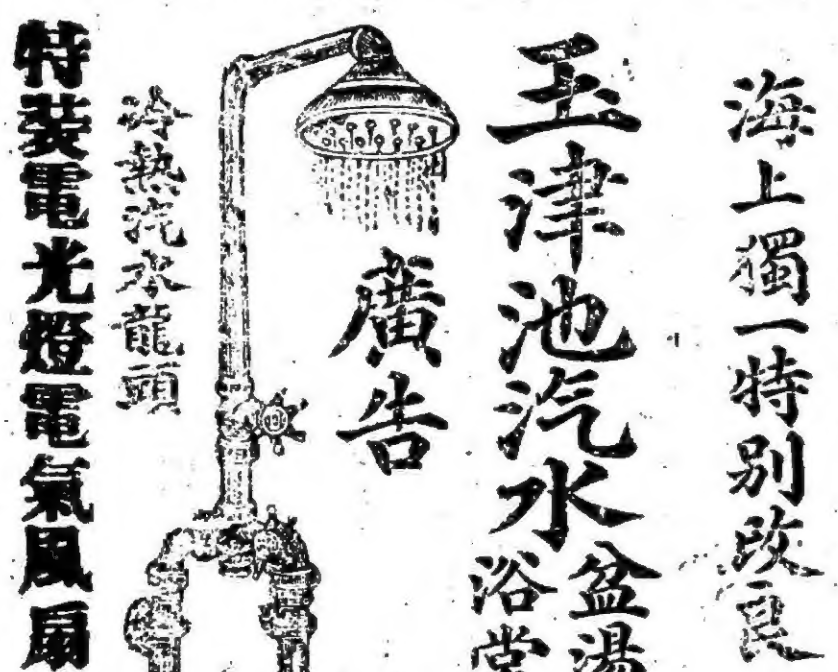 海上獨一特別改良
玉津池汽水盆湯浴堂
廣告
冷熱汽水龍頭
特裝電光燈電氣風扇